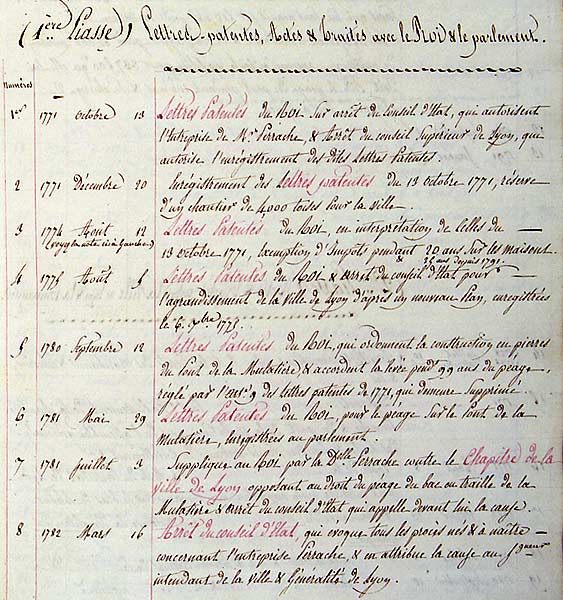 (1ère Liasse) Lettres-patentes, Actes & Traités avec le Roi & le parlement.
Numéros
1er 1771 Octobre 13 Lettres Patentes du Roi Sur arrêt du Conseil d'Etat, qui autorisent
l'Entreprise de Mr Perrache, & Arrêt du conseil Supérieur de Lyon, qui
autorise l'enregistrement des dites Lettres Patentes.
2 1771 Décembre 20 Enrégistrement des Lettres patentes du 13 octobre 1771, réserve
d'un chantier de 4,000 toises Pour la ville.
3 1774 Août 12 Lettres Patentes du Roi, en interprétation de Celles du
(voyez la note ici à Gauche) 13 octobre 1771, Exemption d'Impots pendant 20 ans Sur les maisons.
& 25 ans depuis 1791.
4 1775 Août 5 Lettres Patentes du Roi & arrêt du conseil d'Etat pour
l'agrandissement de la Ville de Lyon d'après un nouveau Plan, enregistrées
le 6. 7bre 1775.
5 1780 Septembre 12 Lettres Patentes du Roi, qui ordonnent la construction en pierres
du Pont de la Mulatière & accordent la levée pendt 99 ans du péage,
réglé par l'artle 9 des lettres patentes de 1771, qui demeure Supprimé.
6 1781 Mai 29 Lettres Patentes du Roi, pour le péage Sur le Pont de la
Mulatière, Enrégistrées au parlement.
7 1781 Juillet 3 Supplique au Roi par la Dlle Perrache contre le Chapitre de la
Ville de Lyon opposant au Droit du péage de bac ou traille de la
Mulatière & arrêt du conseil d'Etat qui appelle devant lui la cause.
8 1782 Mars 16 Arrêt du conseil d'Etat, qui évoque tous les procès nés & à naître
concernant l'entreprise Perrache, & en attribue la cause au Sgneur
intendant de la Ville & Généralité de Lyon.